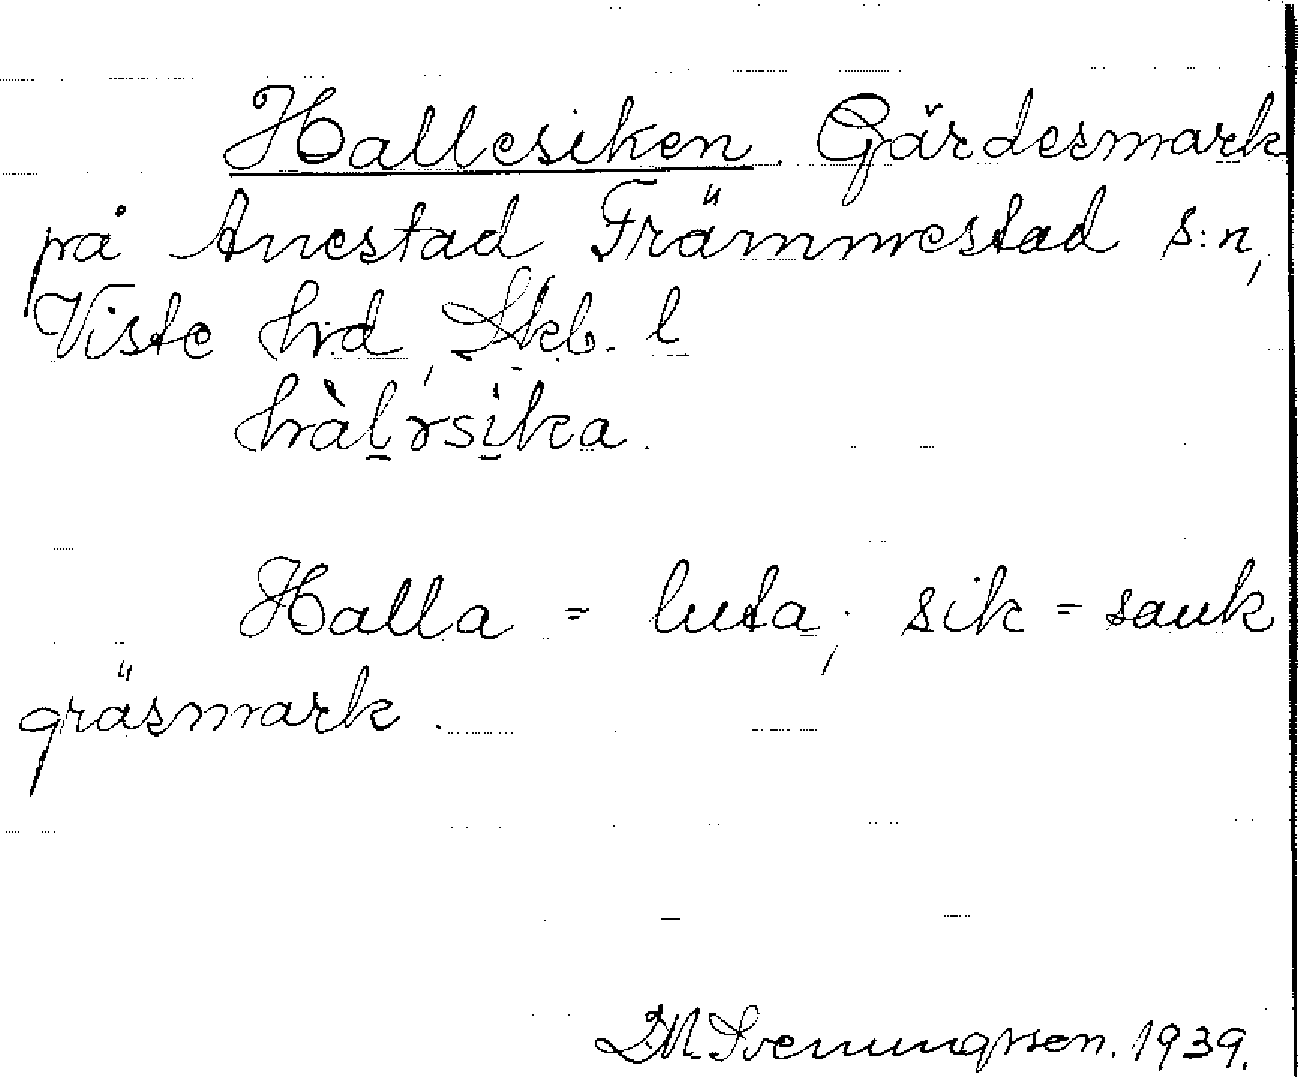 Hallesiken. Gärdesmark
på Anestad Främmestad s:n,
Viste hrd, Skb. l
hàl̠rsi̠ka.
Halla = luta; sik = sank
gräsmark.
D.M. Svenungsson. 1939.